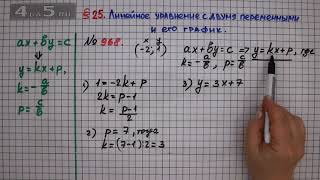 4 da 5 mi
§ 25. Линейное уравнение с двумя переменными и его график.
ax + by = c
⇓
y = kx + p,
k = -a/b
p = c/b
№ 968.
x y
(-2; 1)
1) 1 = -2k + p
2k = p - 1
k = (p-1)/2
2) p = 7, тогда
k = (7-1):2 = 3
ax + by = c => y = kx + p, где
k = -a/b, p = c/b
3) y = 3x + 7